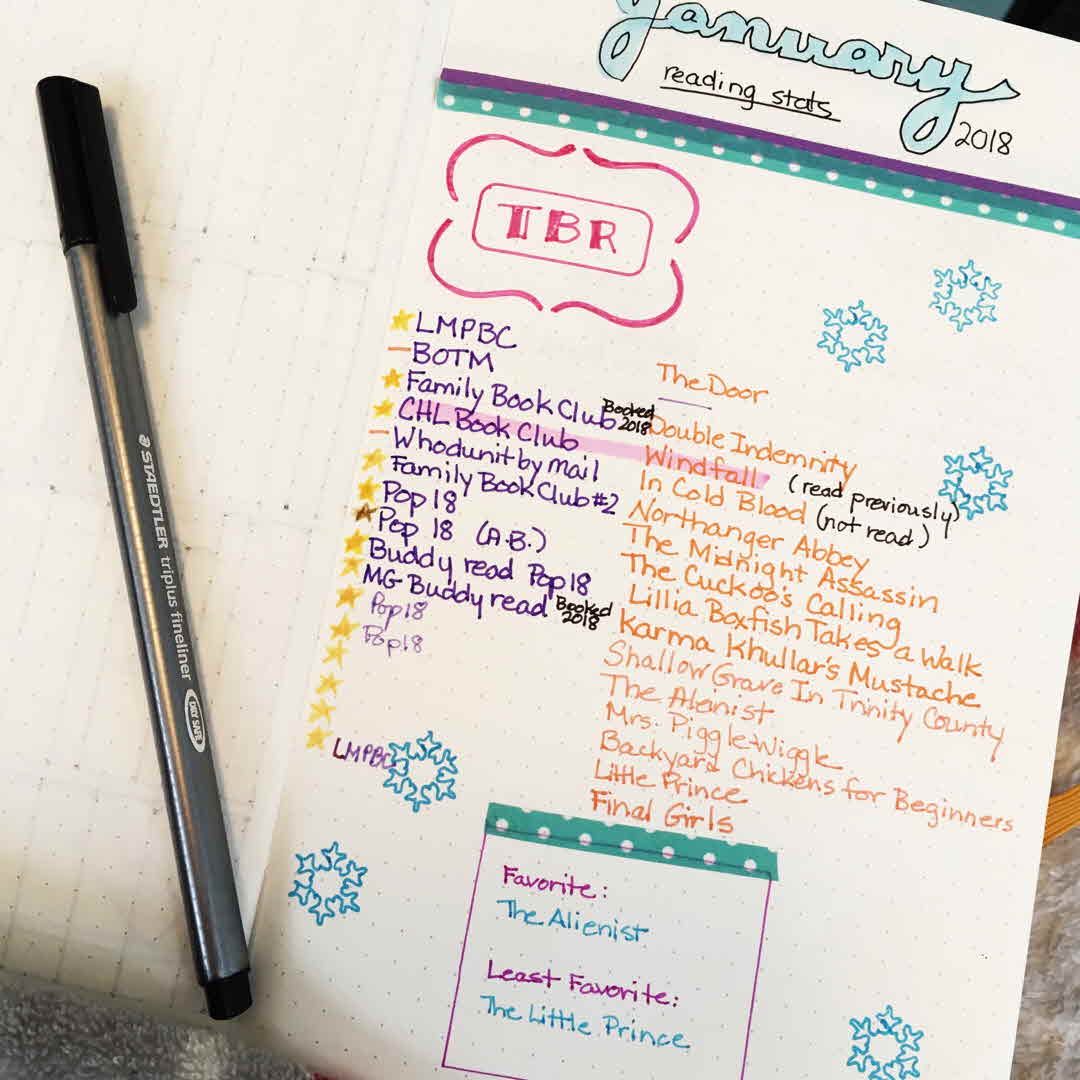 January
reading stats
2018
TBR
LMPBC
BOTM
Family Book Club Booked 2018
CHL Book Club
Whodunit by mail
Family Book Club #2
Pop 18
Pop 18 (A.B.)
Buddy read Pop18
MG Buddy read Booked 2018
Pop18
Pop18
LMPBC
The Door
Double Indemnity
Windfall (read previously)
In Cold Blood (not read)
Northanger Abbey
The Midnight Assassin
The Cuckoo's Calling
Lillia Boxfish Takes a Walk
Karma Khullar's Mustache
Shallow Grave In Trinity County
The Aleinist
Mrs. Piggle-Wiggle
Backyard Chickens for Beginners
Little Prince
Final Girls
Favorite:
The Alienist
Least Favorite:
The Little Prince
STAEDTLER triplus fineliner
DRY SAFE